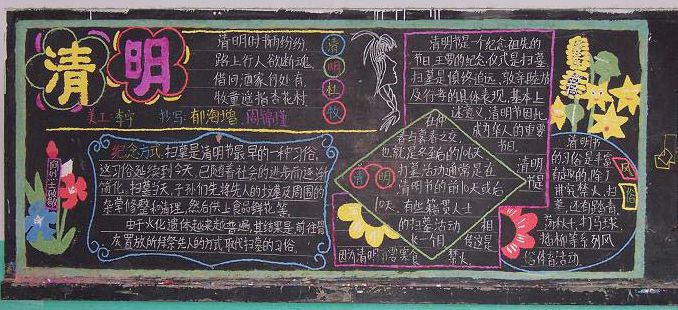 清明
清明时节雨纷纷,
路上行人欲断魂,
借问酒家何处有,
牧童遥指杏花村.
清
明
杜
牧
美工:李宁 抄写:郁海增、周锦瑾
纪念方式:扫墓是清明节最早的一种习俗,
这习俗延续到今天,已随着社会的进步而逐渐
简化,扫墓当天,子孙们先将先人的坟墓及周围的
杂草修整和清理,然后供上食品鲜花等,
由于火化遗体越来越普遍,其结果是前往骨
灰置放所拜祭先人的方式取代扫墓的习俗.
清明节是一个纪念祖先的
节日.主要的纪念仪式是扫墓,
扫墓是慎终追远、敦亲睦族
及行孝的具体表现,基本上
述意义,清明节因此
成为华人的重要
节日.
清明
节是
在仲
春与暮春之交,
也就是冬至后的106天.
清 明
扫墓活动通常是在
清明节的前10天或后
10天.
有些籍贯人士
的扫墓活动
长一个月
相
传这是
因为清明节要寒食
禁火
风
俗
清明节
的习俗是丰富
有趣的,除了
讲究禁火、扫
墓,还有踏青、
荡秋千、打马球、
插柳等系列风
俗体育活动.